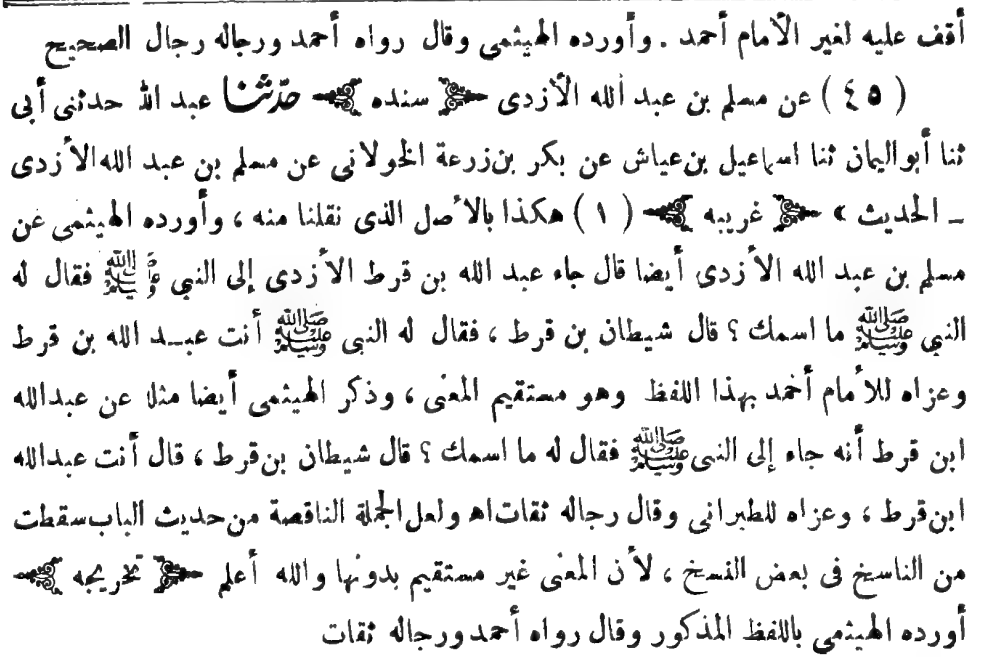 أقف عليه لغير الأمام أحمد . وأورده الهيثمى وقال رواه أحمد ورجاله رجال الصحيح
( ٤٥ ) عن مسلم بن عبد الله الأزدى ﴿ سنده ﴾ حدّثنا عبد الله حدثنى أبى
ثنا أبو اليمان ثنا اسماعيل بن عياش عن بكر بن زرعة الخولانى عن مسلم بن عبد الله الأزدى
ـ الحديث » ﴿ غريبه ﴾ ( ١ ) هكذا بالأصل الذى نقلنا منه ، وأورده الهيثمى عن
مسلم بن عبد الله الأزدى أيضا قال جاء عبد الله بن قرط الأزدى إلى النبى ﷺ فقال له
النبى ﷺ ما اسمك ؟ قال شيطان بن قرط ، فقال له النبى ﷺ أنت عبـد الله بن قرط
وعزاه للأمام أحمد بهذا اللفظ وهو مستقيم المعنى ، وذكر الهيثمى أيضا مثله عن عبدالله
ابن قرط أنه جاء إلى النبى ﷺ فقال له ما اسمك ؟ قال شيطان بن قرط ، قال أنت عبدالله
ابن قرط ، وعزاه للطبرانى وقال رجاله ثقات اه ولعل الجملة الناقصة من حديث الباب سقطت
من الناسخ فى بعض النسخ ، لأن المعنى غير مستقيم بدونها والله أعلم ﴿ تخريجه ﴾
أورده الهيثمى باللفظ المذكور وقال رواه أحمد ورجاله ثقات